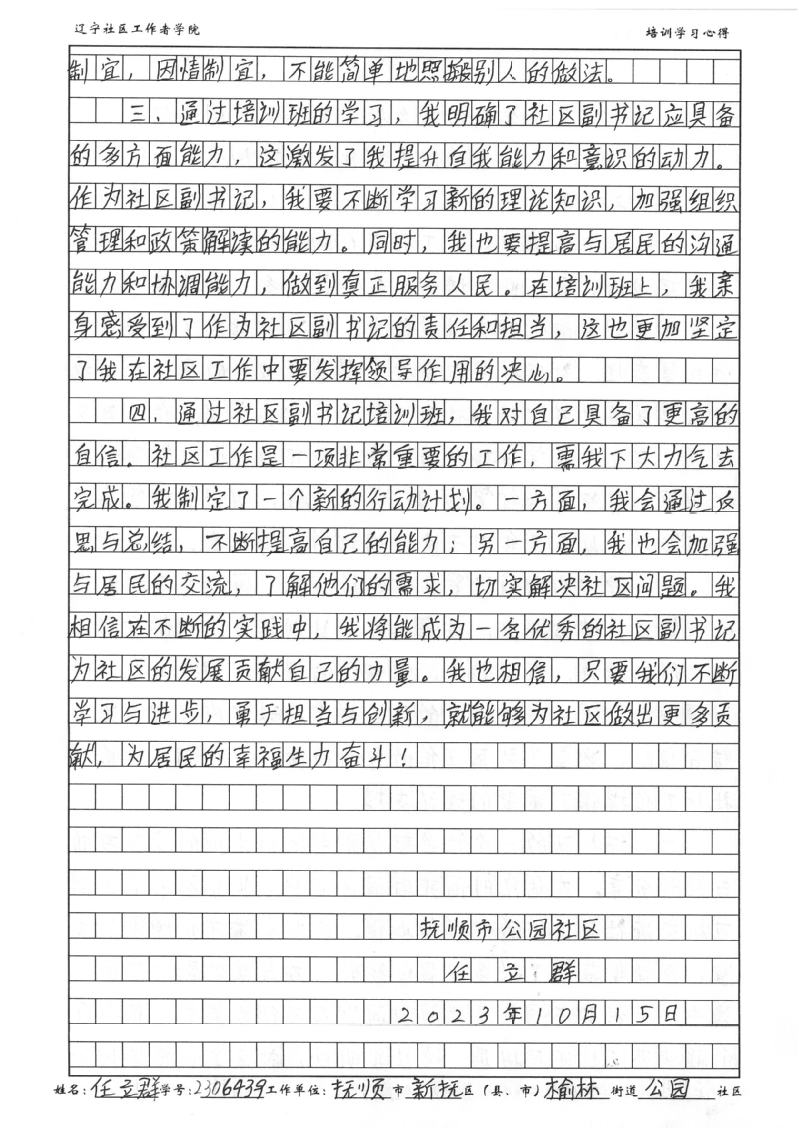 辽宁社区工作者学院 培训学习心得
制宜，因情制宜，不能简单地照搬别人的做法。
三、通过培训班的学习，我明确了社区副书记应具备
的多方面能力，这激发了我提升自我能力和意识的动力。
作为社区副书记，我要不断学习新的理论知识，加强组织
管理和政策解读的能力。同时，我也要提高与居民的沟通
能力和协调能力，做到真正服务人民。在培训班上，我亲
身感受到了作为社区副书记的责任和担当，这也更加坚定
了我在社区工作中要发挥领导作用的决心。
四、通过社区副书记培训班，我对自己具备了更高的
自信。社区工作是一项非常重要的工作，需我下大力气去
完成。我制定了一个新的行动计划。一方面，我会通过反
思与总结，不断提高自己的能力；另一方面，我也会加强
与居民的交流，了解他们的需求，切实解决社区问题。我
相信在不断的实践中，我将能成为一名优秀的社区副书记
为社区的发展贡献自己的力量。我也相信，只要我们不断
学习与进步，勇于担当与创新，就能够为社区做出更多贡
献，为居民的幸福生力奋斗！
抚顺市公园社区
任立群
2023年10月15日
姓名：任立群学号：2306439工作单位：抚顺市新抚区（县、市）榆林街道公园社区